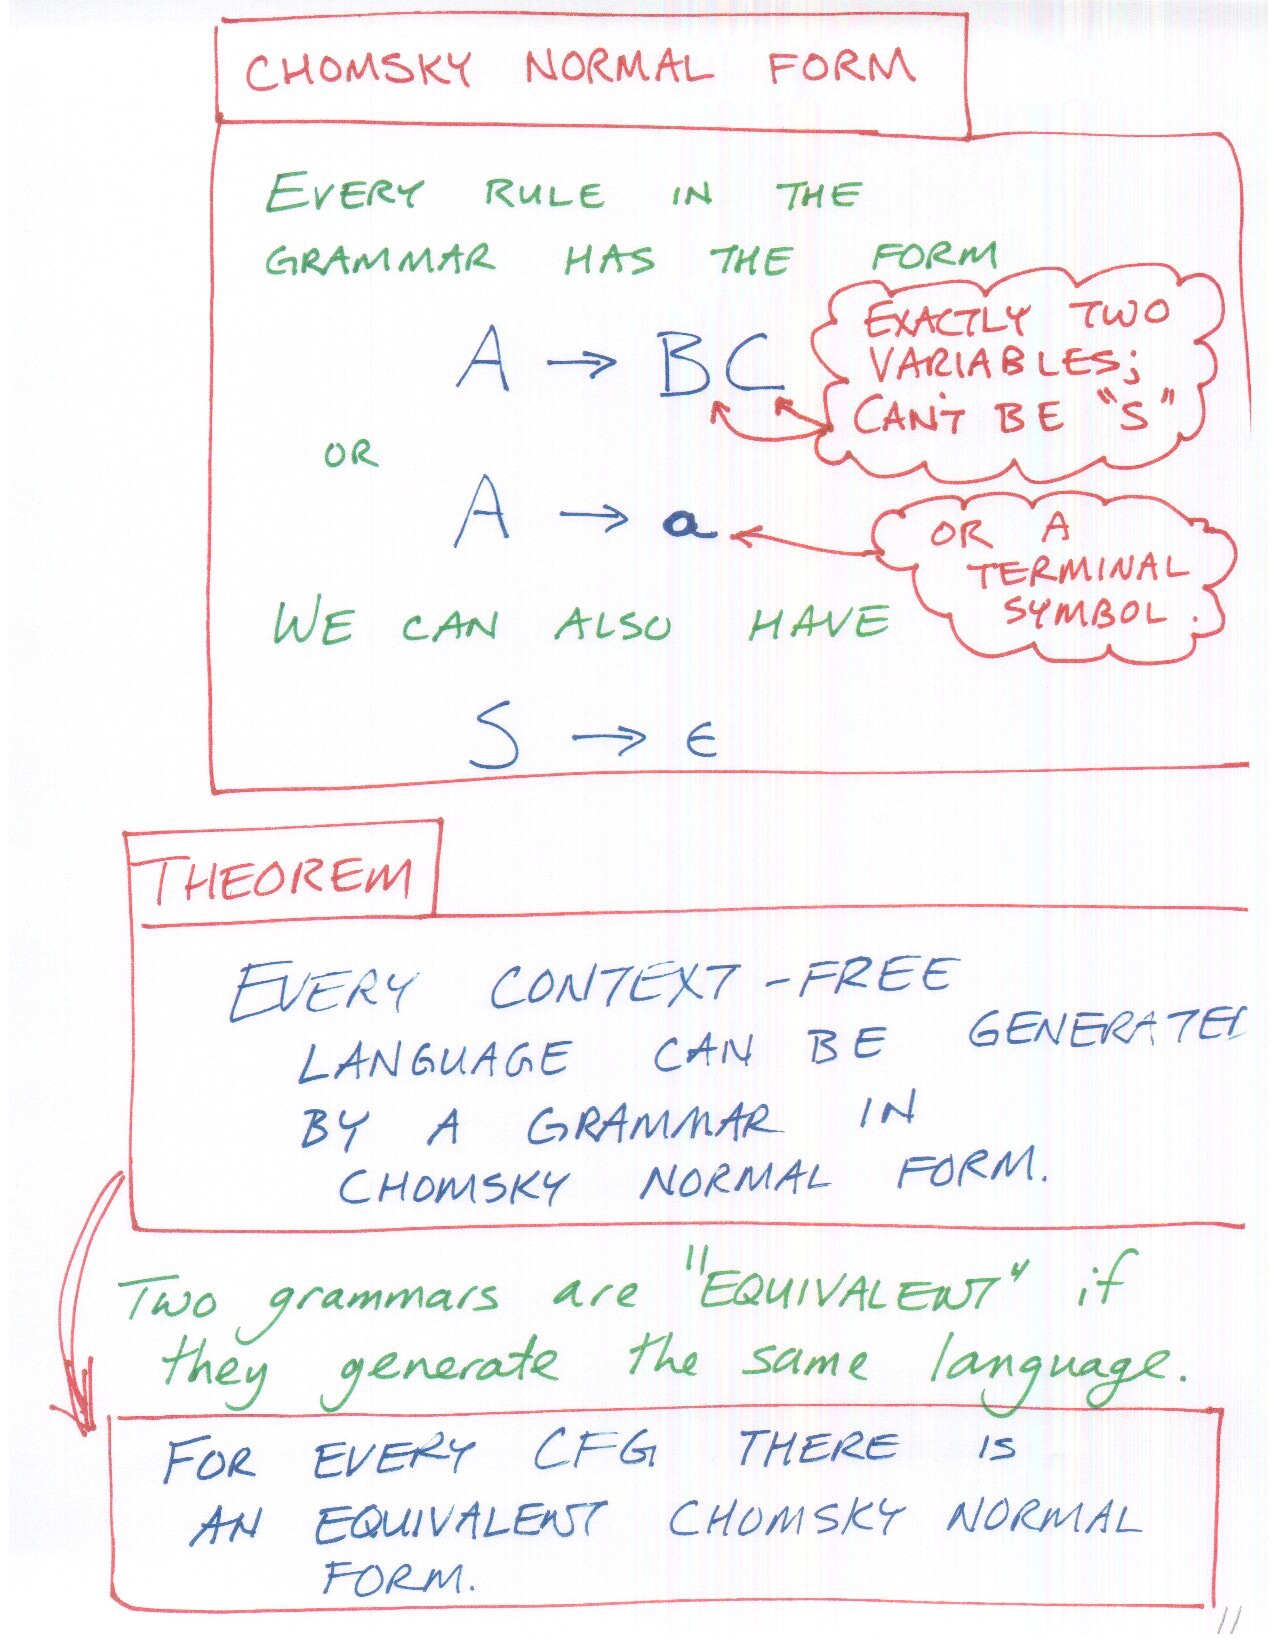 CHOMSKY NORMAL FORM
EVERY RULE IN THE
GRAMMAR HAS THE FORM
A → BC
EXACTLY TWO
VARIABLES;
CAN'T BE "S"
OR
A → a
OR A
TERMINAL
SYMBOL.
WE CAN ALSO HAVE
S → ε
THEOREM
EVERY CONTEXT-FREE
LANGUAGE CAN BE GENERATED
BY A GRAMMAR IN
CHOMSKY NORMAL FORM.
Two grammars are "EQUIVALENT" if
they generate the same language.
FOR EVERY CFG THERE IS
AN EQUIVALENT CHOMSKY NORMAL
FORM.
11